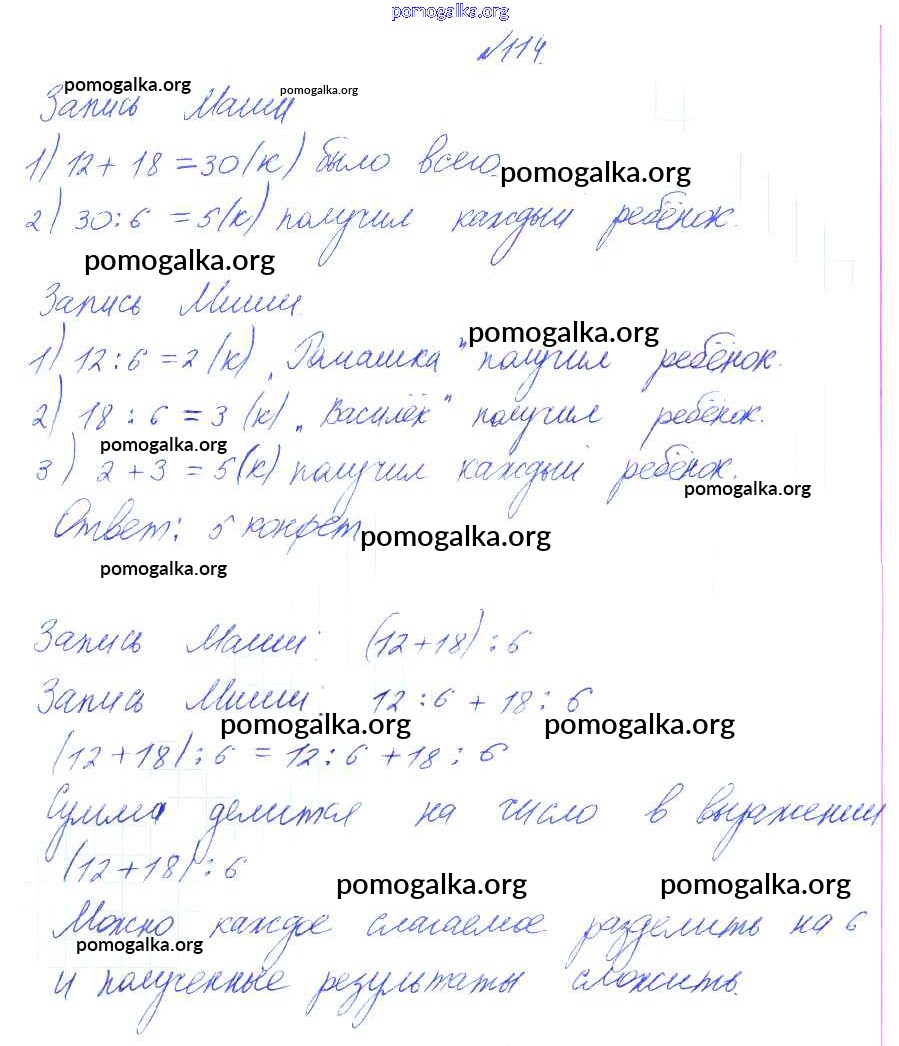 pomogalka.org
№114.
pomogalka.org
pomogalka.org
Запись Маши
1) 12 + 18 = 30 (к) было всего.
pomogalka.org
2) 30 : 6 = 5 (к) получил каждый ребёнок.
pomogalka.org
Запись Миши.
pomogalka.org
1) 12 : 6 = 2 (к) „Рамашка" получил ребёнок.
2) 18 : 6 = 3 (к) „Василёк" получил ребёнок.
pomogalka.org
3) 2 + 3 = 5 (к) получил каждый ребёнок.
pomogalka.org
Ответ: 5 конфет
pomogalka.org
pomogalka.org
Запись Маши: (12 + 18) : 6
Запись Миши: 12 : 6 + 18 : 6
pomogalka.org pomogalka.org
(12 + 18) : 6 = 12 : 6 + 18 : 6
Сумма делится на число в выражении
(12 + 18) : 6
pomogalka.org pomogalka.org
Можно каждое слагаемое разделить на 6
pomogalka.org
и полученные результаты сложить.